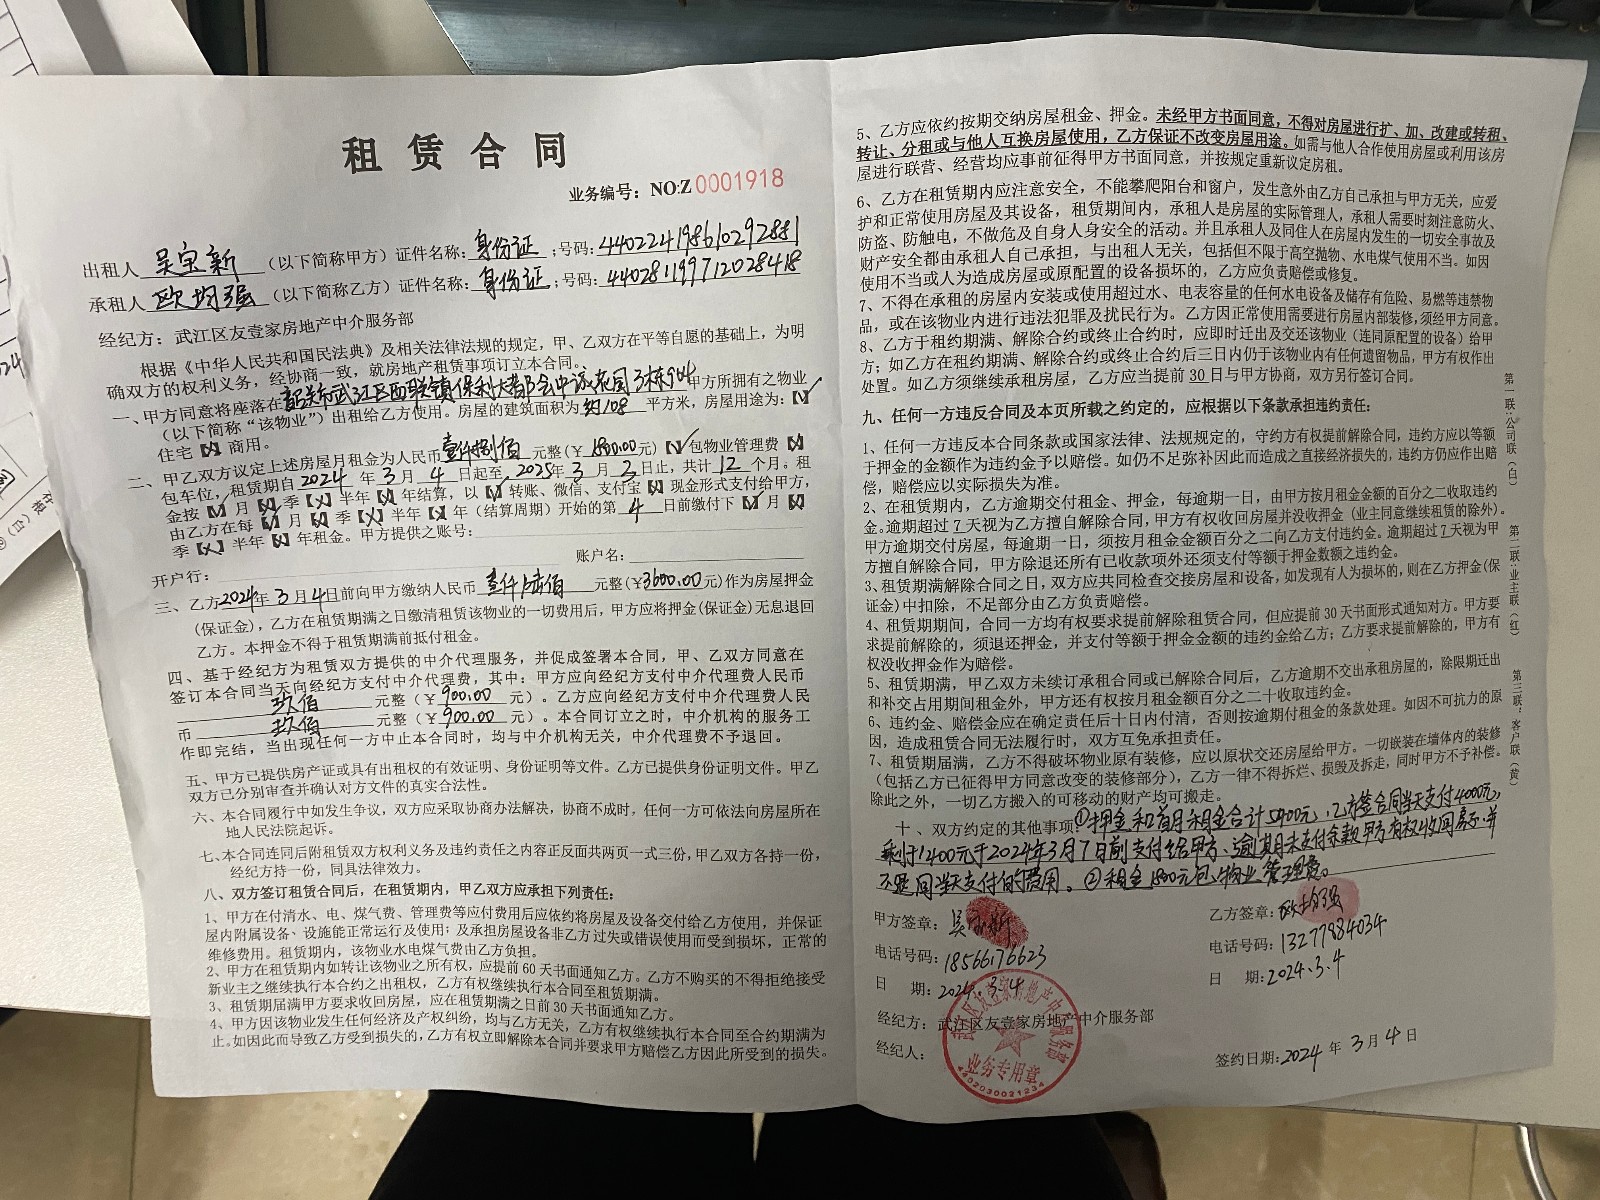 租 赁 合 同
业务编号：NO:Z 0001918
出租人 吴宝新 （以下简称甲方）证件名称：身份证；号码：440224198610292881
承租人 欧均强 （以下简称乙方）证件名称：身份证；号码：440281199712028418
经纪方：武江区友壹家房地产中介服务部
根据《中华人民共和国民法典》及相关法律法规的规定，甲、乙双方在平等自愿的基础上，为明
确双方的权利义务，经协商一致，就房地产租赁事项订立本合同。
一、甲方同意将座落在韶关市武江区西联镇保利大都会中派花园3栋504甲方所拥有之物业
（以下简称“该物业”）出租给乙方使用。房屋的建筑面积为 约108 平方米，房屋用途为：【√】
住宅【×】商用。
二、甲乙双方议定上述房屋月租金为人民币 壹仟捌佰 元整（￥1800.00元）【√】包物业管理费【×】
包车位，租赁期自2024年3月4日起至2025年3月3日止，共计12个月。租
金按【√】月【×】季【×】半年【×】年结算，以【√】转账、微信、支付宝【×】现金形式支付给甲方，
由乙方在每【√】月【×】季【×】半年【×】年（结算周期）开始的第 4 日前缴付下【√】月【×】
季【×】半年【×】年租金。甲方提供之账号：
账户名：
开户行：
三、乙方2024年3月4日前向甲方缴纳人民币 壹仟陆佰 元整（￥3600.00元）作为房屋押金
（保证金），乙方在租赁期满之日缴清租赁该物业的一切费用后，甲方应将押金(保证金)无息退回
乙方。本押金不得于租赁期满前抵付租金。
四、基于经纪方为租赁双方提供的中介代理服务，并促成签署本合同，甲、乙双方同意在
签订本合同当天向经纪方支付中介代理费，其中：甲方应向经纪方支付中介代理费人民
币 玖佰 元整（￥900.00 元）。乙方应向经纪方支付中介代理费人民
玖佰 元整（￥900.00 元）。本合同订立之时，中介机构的服务工
作即完结，当出现任何一方中止本合同时，均与中介机构无关，中介代理费不予退回。
五、甲方已提供房产证或具有出租权的有效证明、身份证明等文件。乙方已提供身份证明文件。甲乙
双方已分别审查并确认对方文件的真实合法性。
六、本合同履行中如发生争议，双方应采取协商办法解决，协商不成时，任何一方可依法向房屋所在
地人民法院起诉。
七、本合同连同后附租赁双方权利义务及违约责任之内容正反面共两页一式三份，甲乙双方各持一份，
经纪方持一份，同具法律效力。
八、双方签订租赁合同后，在租赁期内，甲乙双方应承担下列责任：
1、甲方在付清水、电、煤气费、管理费等应付费用后应依约将房屋及设备交付给乙方使用，并保证
屋内附属设备、设施能正常运行及使用；及承担房屋设备非乙方过失或错误使用而受到损坏，正常的
维修费用。租赁期内，该物业水电煤气费由乙方负担。
2、甲方在租赁期内如转让该物业之所有权，应提前60天书面通知乙方。乙方不购买的不得拒绝接受
新业主之继续执行本合约之出租权，乙方有权继续执行本合同至租赁期满。
3、租赁期届满甲方要求收回房屋，应在租赁期满之日前30天书面通知乙方。
4、甲方因该物业发生任何经济及产权纠纷，均与乙方无关，乙方有权继续执行本合同至合约期满为
止。如因此而导致乙方受到损失的，乙方有权立即解除本合同并要求甲方赔偿乙方因此所受到的损失。
5、乙方应依约按期交纳房屋租金、押金。未经甲方书面同意，不得对房屋进行扩、加、改建或转租、
转让、分租或与他人互换房屋使用，乙方保证不改变房屋用途。如需与他人合作使用房屋或利用该房
屋进行联营、经营均应事前征得甲方书面同意，并按规定重新议定房租。
6、乙方在租赁期内应注意安全，不能攀爬阳台和窗户，发生意外由乙方自己承担与甲方无关，应爱
护和正常使用房屋及其设备，租赁期间内，承租人是房屋的实际管理人，承租人需要时刻注意防火、
防盗、防触电，不做危及自身人身安全的活动。并且承租人及同住人在房屋内发生的一切安全事故及
财产安全都由承租人自己承担，与出租人无关，包括但不限于高空抛物、水电煤气使用不当。如因
使用不当或人为造成房屋或原配置的设备损坏的，乙方应负责赔偿或修复。
7、不得在承租的房屋内安装或使用超过水、电表容量的任何水电设备及储存有危险、易燃等违禁物
品，或在该物业内进行违法犯罪及扰民行为。乙方因正常使用需要进行房屋内部装修，须经甲方同意。
8、乙方于租约期满、解除合约或终止合约时，应即时迁出及交还该物业（连同原配置的设备）给甲
方；如乙方在租约期满、解除合约或终止合约后三日内仍于该物业内有任何遗留物品，甲方有权作出
处置。如乙方须继续承租房屋，乙方应当提前30日与甲方协商，双方另行签订合同。
九、任何一方违反合同及本页所载之约定的，应根据以下条款承担违约责任：
1、任何一方违反本合同条款或国家法律、法规规定的，守约方有权提前解除合同，违约方应以等额
于押金的金额作为违约金予以赔偿。如仍不足弥补因此而造成之直接经济损失的，违约方仍应作出赔
偿，赔偿应以实际损失为准。
2、在租赁期内，乙方逾期交付租金、押金，每逾期一日，由甲方按月租金金额的百分之二收取违约
金。逾期超过7天视为乙方擅自解除合同，甲方有权收回房屋并没收押金（业主同意继续租赁的除外）。
甲方逾期交付房屋，每逾期一日，须按月租金金额百分之二向乙方支付违约金。逾期超过7天视为甲
方擅自解除合同，甲方除退还所有已收款项外还须支付等额于押金数额之违约金。
3、租赁期满解除合同之日，双方应共同检查交接房屋和设备，如发现有人为损坏的，则在乙方押金(保
证金)中扣除，不足部分由乙方负责赔偿。
4、租赁期期间，合同一方均有权要求提前解除租赁合同，但应提前30天书面形式通知对方。甲方要
求提前解除的，须退还押金，并支付等额于押金金额的违约金给乙方；乙方要求提前解除的，甲方有
权没收押金作为赔偿。
5、租赁期满，甲乙双方未续订承租合同或已解除合同后，乙方逾期不交出承租房屋的，除限期迁出
和补交占用期间租金外，甲方还有权按月租金额百分之二十收取违约金。
6、违约金、赔偿金应在确定责任后十日内付清，否则按逾期付租金的条款处理。如因不可抗力的原
因，造成租赁合同无法履行时，双方互免承担责任。
7、租赁届满，乙方不得破坏物业原有装修，应以原状交还房屋给甲方。一切嵌装在墙体内的装修
（包括乙方已征得甲方同意改变的装修部分），乙方一律不得拆烂、损毁及拆走，同时甲方不予补偿。
除此之外，一切乙方搬入的可移动的财产均可搬走。
十、双方约定的其他事项：①押金和首月租金合计5400元，乙方签合同当天支付4000元，
剩于1400元于2024年3月7日前支付给甲方、逾期未支付余款甲方有权收回房子，并
不退回当天支付的费用。②租金1800元包物业管理费。
甲方签章：吴宝新
乙方签章：欧均强
电话号码：18566176623
电话号码：13277984034
日 期：2024.3.4
日 期：2024.3.4
经纪方：武江区友壹家房地产中介服务部
经纪人：
签约日期：2024 年 3 月 4 日
武江区友壹家房地产中介服务部
业务专用章
4402030021234
第一联：公司联（白） 第二联：业主联（红） 第三联：客户联（黄）